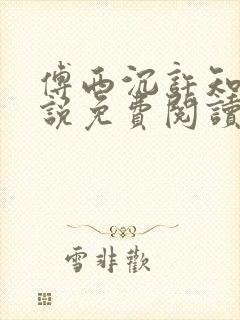 傅西沉許知
說免費閱讀
雪非歡